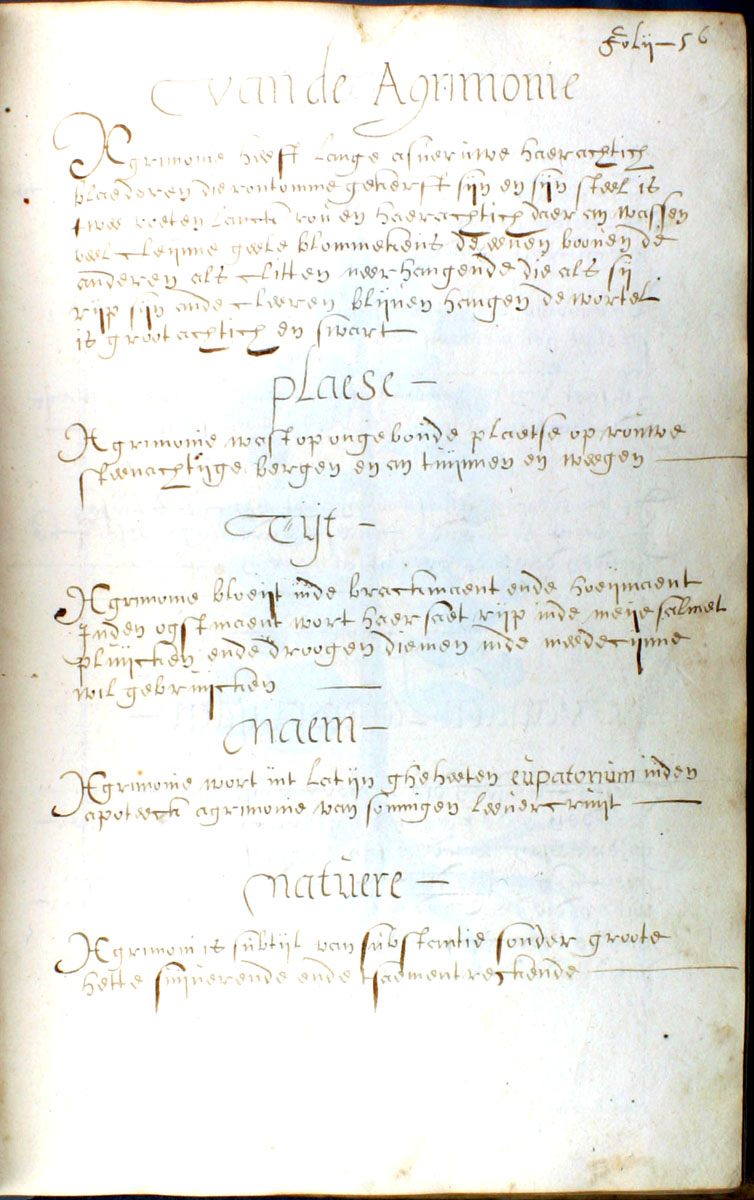 folij—56
van de Agrimonie
Agrimonie heeft lange asveruwe haerachtich
blaederen die rontomme gekerft sijn en sijn steel is
twee voeten lanck rou en haerachtich daer an wassen
veel cleijnne geele blommekens de eenen booven de
anderen als clitten neerhangende die als sij
rijp sijn ande cleeren blijven hangen de wortel
is grootachtich en swart
plaese —
Agrimonie wast op ongeboude plaetse op rouwe
steenachtijge bergen en an tuijnnen en weegen
Tijt —
Agrimonie bloeijt inde brackmaent ende hoeijmaent
Inden ogstmaent wort haer saet rijp inde meije salmet
pluijcken ende droogen diemen inde medecijnne
wil gebruijcken
Naem —
Agrimonie wort int latijn gheheeten eupatorium inden
apoteeck agrimonie van somingen leevercruijt
Natuere —
Agrimoni is subtijl van substantie sonder groote
hette suijverende ende tsaement reckende